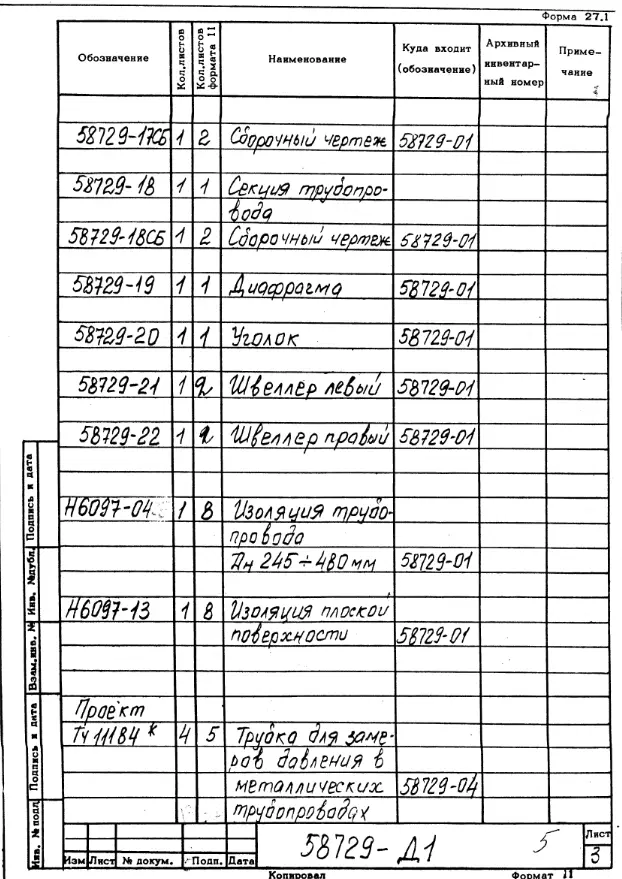 Форма 27.1
Обозначение Кол.листов Кол.листов формата 11 Наименование Куда входит (обозначение) Архивный инвентарный номер Примечание
58729-17СБ 1 2 Сборочный чертеж 58729-01
58729-18 1 1 Секция трубопро-
вода
58729-18СБ 1 2 Сборочный чертеж 58729-01
58729-19 1 1 Диафрагма 58729-01
58729-20 1 1 Уголок 58729-01
58729-21 1 2 Швеллер левый 58729-01
58729-22 1 2 Швеллер правый 58729-01
Н6097-04 1 8 Изоляция трубо-
провода
Дн 245÷480 мм 58729-01
Н6097-13 1 8 Изоляция плоской
поверхности 58729-01
Проект
Тч 11184 * 4 5 Трубка для заме-
ров давления в
металлических 58729-04
трубопроводах
Подпись и дата
Инв. №дубл.
Взам.инв. №
Подпись и дата
Инв. № подл
58729-Д1 5
Лист
3
Изм Лист № докум. Подп. Дата
Копировал Формат 11